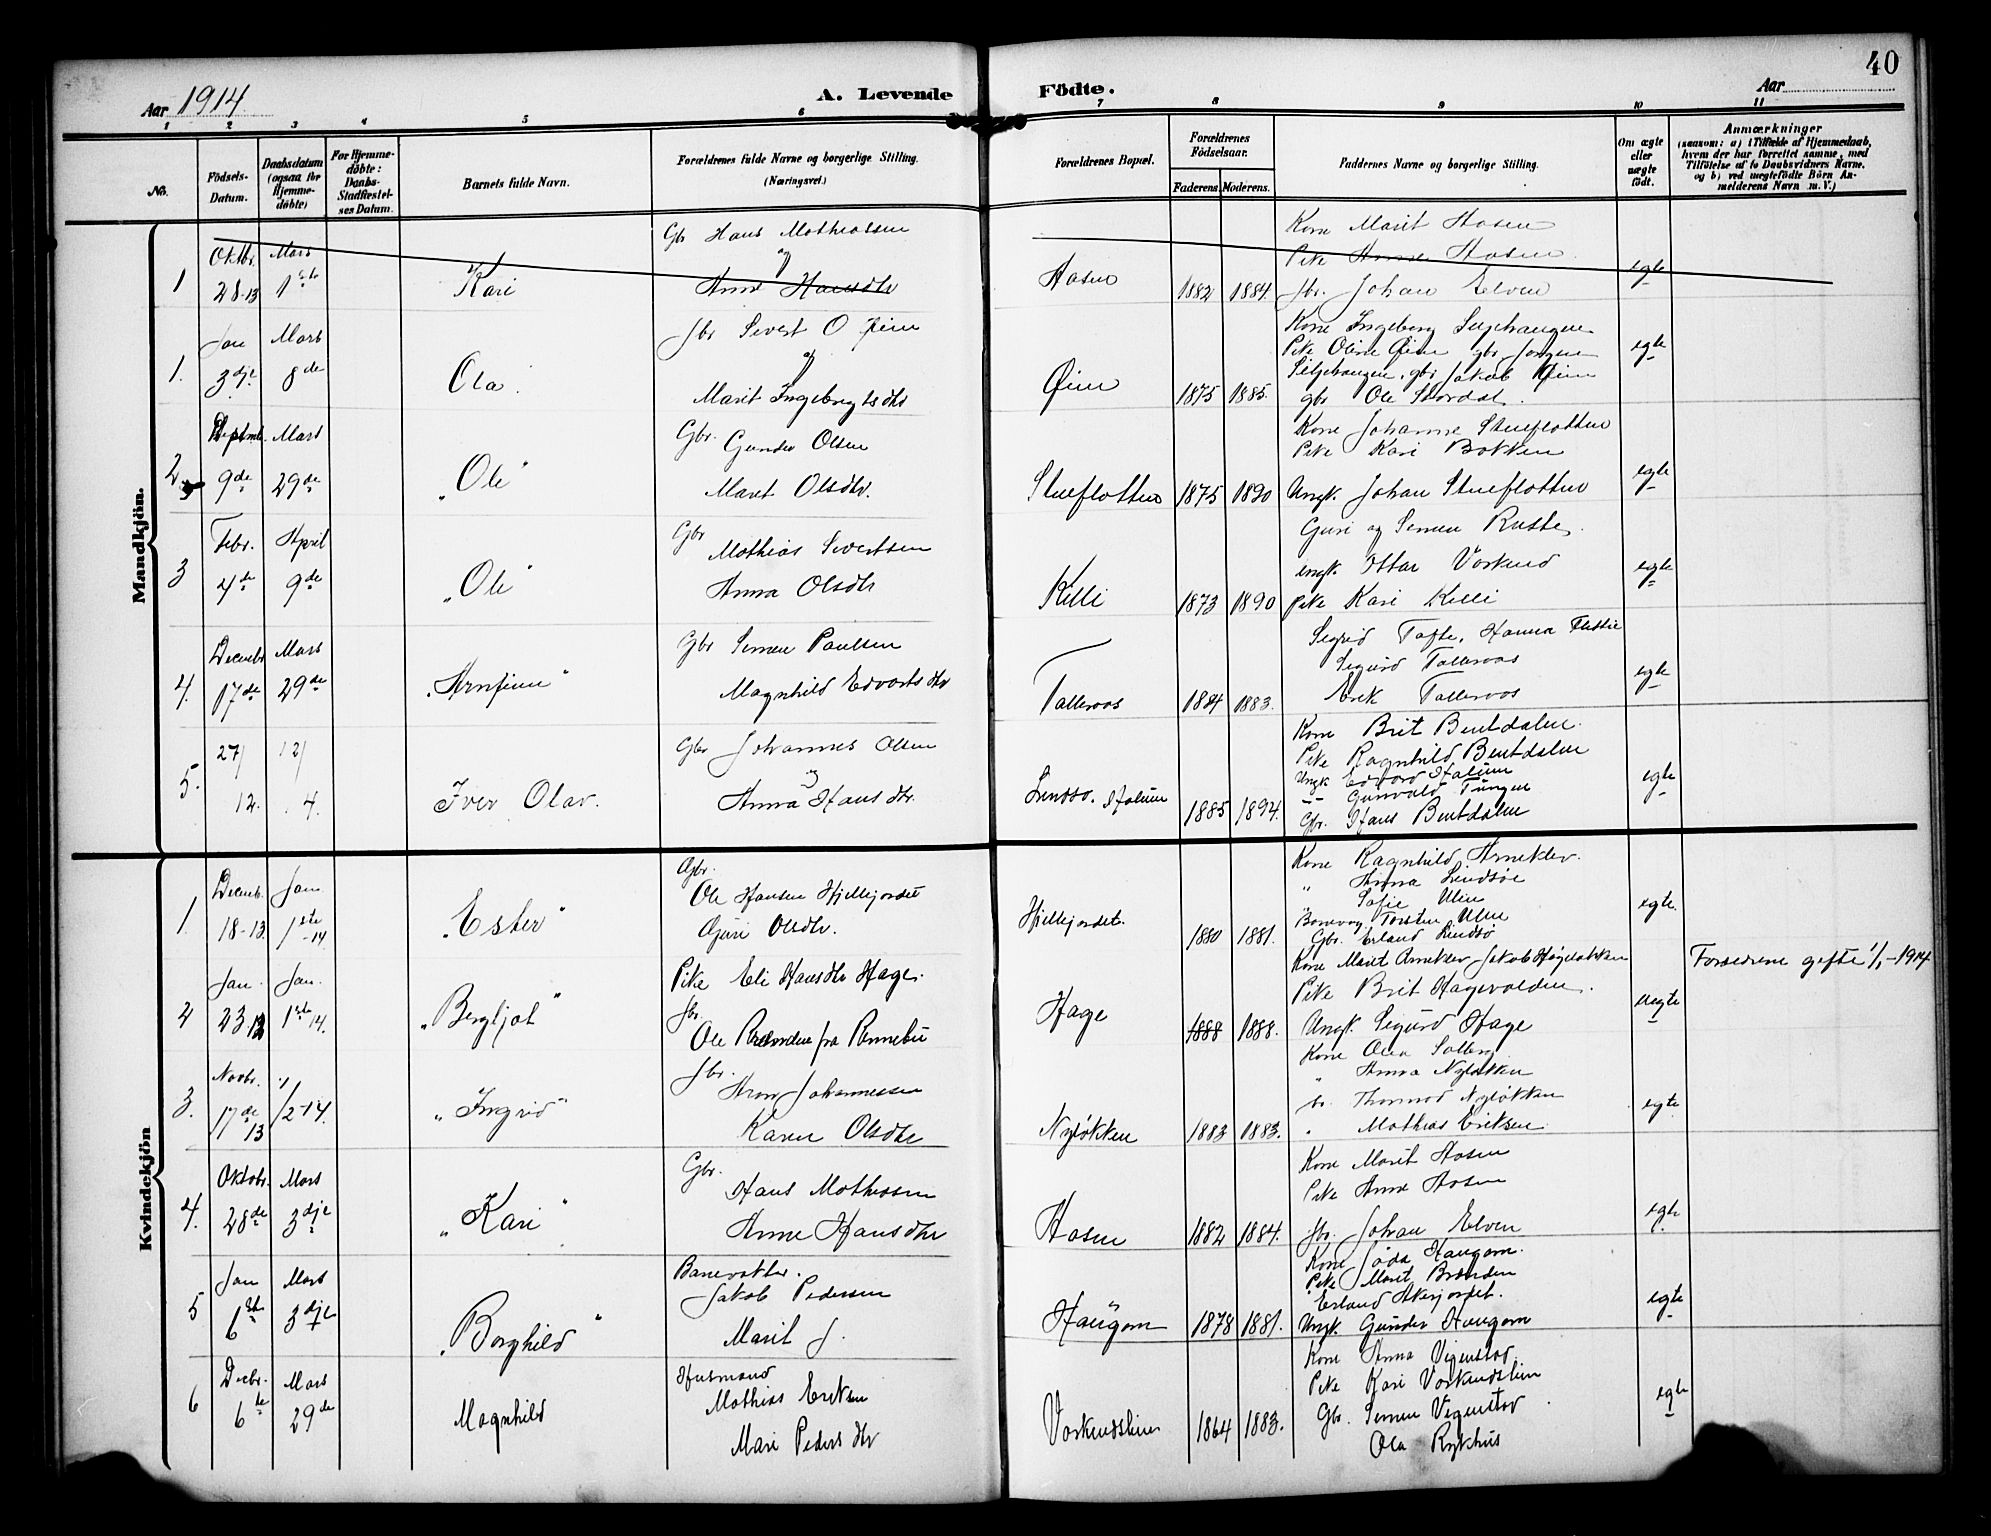 40
Aar 1914
A. Levende Födte.
Aar
1 2 3 4 5 6 7 8 9 10 11
No.
Födsels-Datum.
Daabsdatum (ogsaa for Hjemme-döbte)
For Hjemme-döbte: Daabs-Stadfæstel-ses Datum.
Barnets fulde Navn.
Forældrenes fulde Navne og borgerlige Stilling. (Næringsvei.)
Forældrenes Bopæl.
Forældrenes Födselsaar.
Faderens. Moderens.
Faddernes Navne og borgerlige Stilling.
Om ægte eller uægte födt.
Anmærkninger
(saasom: a) i Tilfælde af Hjemmedaab, hvem der har forrettet samme, med Tilföielse af to Daabsvidners Navne, og b) ved uægtefödte Börn An-melderens Navn m. V.)
Mandkjön.
1 Oktbr. 28-13 Mars 1ste Kari
Gbr Hans Mathiassen
og
Anne Hansdtr
Hosen 1882 1884
Kone Marit Hosen
Pike Anne Hosen
fbr. Johan Elven
egte
1. Jan 3dje Mars 8de Ola.
fbr Sivert O Øien
og
Marit Ingebrigtsdtr
Øien 1875 1885.
Kone Ingeborg
Pike Oline Øien gbr Jørgen
gbr Jakob Øien
gbr Ole Stordal.
egte
2 Septmb. 9de Mars 29de "Ole"
Gbr. Gunder Olsen
Marit Olsdtr.
Stueflotten 1875 1890
Kone Johanne Stueflotten
Pike Kari Bakken
Ungk. Johan Stueflotten
Guri og Simen Ruste.
egte
3 Febr. 4de April 9de "Ole"
Gbr
Mathias Sivertsen
Anna Olsdtr
Killi 1873 1890
ungk. Ottar Vorkind
pike Kari Killi
egte
4. Decembr 17de Mars 29de "Arnfinn"
Gbr Simen Paulsen
Magnhild Edvartsdtr
Talleraas 1884 1883.
Sigrid Tofte, Hanna
Sigurd Talleraas
Erik Talleraas
egte
5. 27/12. 12/4. Iver Olav.
Gbr Johannes Olsen
og
Anna Hansdtr.
Lendsø. 1885 1894.
Kone Brit Bentdalen.
Pike Ragnhild Bentdalen
Ungk Edvard
-"- Gunvald Tungen
Gbr. Hans Bentdalen
egte
Kvindekjön
1. Decemb. 18-13. Jan. 1ste-14 "Ester"
Gbr.
Ole Hansen Hjellejordet
Guri Olsdtr.
Hjellejordet. 1880 1881.
Kone Ragnhild Arneklev.
" Anna Lendsøe
" Sofie Ulen
Torsten Ulen
Gbr. Erland Lendsø
egte.
2 Jan. 23.13 Jan. 1ste 14. "Bergljot"
Pike Eli Hansdtr Hage.
fbr.
Ole fra Rennebu
Hage 1888 1888.
Kone Marit Arneklev Jakob Høgeløkken
Pike Brit Hagevolden.
Ungk. Sigurd Hage
uegte
Forældrene gifte 1/1-1914
3. Novbr. 17de 13 1/2-14. "Ingrid"
fbr.
Aron Johannessen
Karen Olsdtr
Nyløkken 1883 1883.
Kone Olea Solberg
" Anna Nyløkken
br. Thormod Nyløkken
" Mathias Eriksen
egte
4. Oktobr. 28de Mars 3dje "Kari"
Gbr.
Hans Mathiassen
Anne Hansdtr
Hosen 1882 1884.
Kone Marit Hosen
Pike Anne Hosen
fbr. Johan Elven
egte
5 Jan 6te Mars 3dje "Borghild"
Banevokter.
Jakob Pedersen
Marit J.
Haugom 1878 1881.
Kone Haugom.
Pike Marit Brænden
Erland Akerjordet.
Ungk. Gunder Haugom
egte
6 Decbr. 6te Mars 29de Magnhild
Husmand
Mathias Eriksen
Mari Pedersdtr
Vorkindslien 1864 1883.
Kone Anna Vigenstad
Pike Kari Vorkindslien
Gbr. Simen Vigenstad
Ola Rykhus
egte